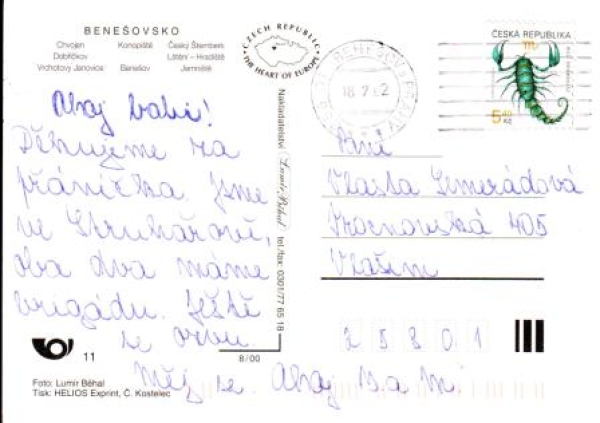 BENEŠOVSKO
Chvojen Konopiště Český Šternberk
Dobříčkov Lštění – Hradiště
Vrchotovy Janovice Benešov Jemniště
CZECH REPUBLIC • THE HEART OF EUROPE •
18.7.02
ČESKÁ REPUBLIKA
m
5,40
Kč
Ahoj babi!
Děkujeme za
přáníčka. Jsme
ve Struhařově,
oba dva máme
brigádu. Ještě
se ozvu.
Měj se. Ahoj
Nakladatelství Lumír Běhal tel/fax: 0301/77 65 18
Paní
Vlasta Semerádová
405
Vlašim
25801
11
8/00
Foto: Lumír Běhal
Tisk: HELIOS Exprint, Č. Kostelec